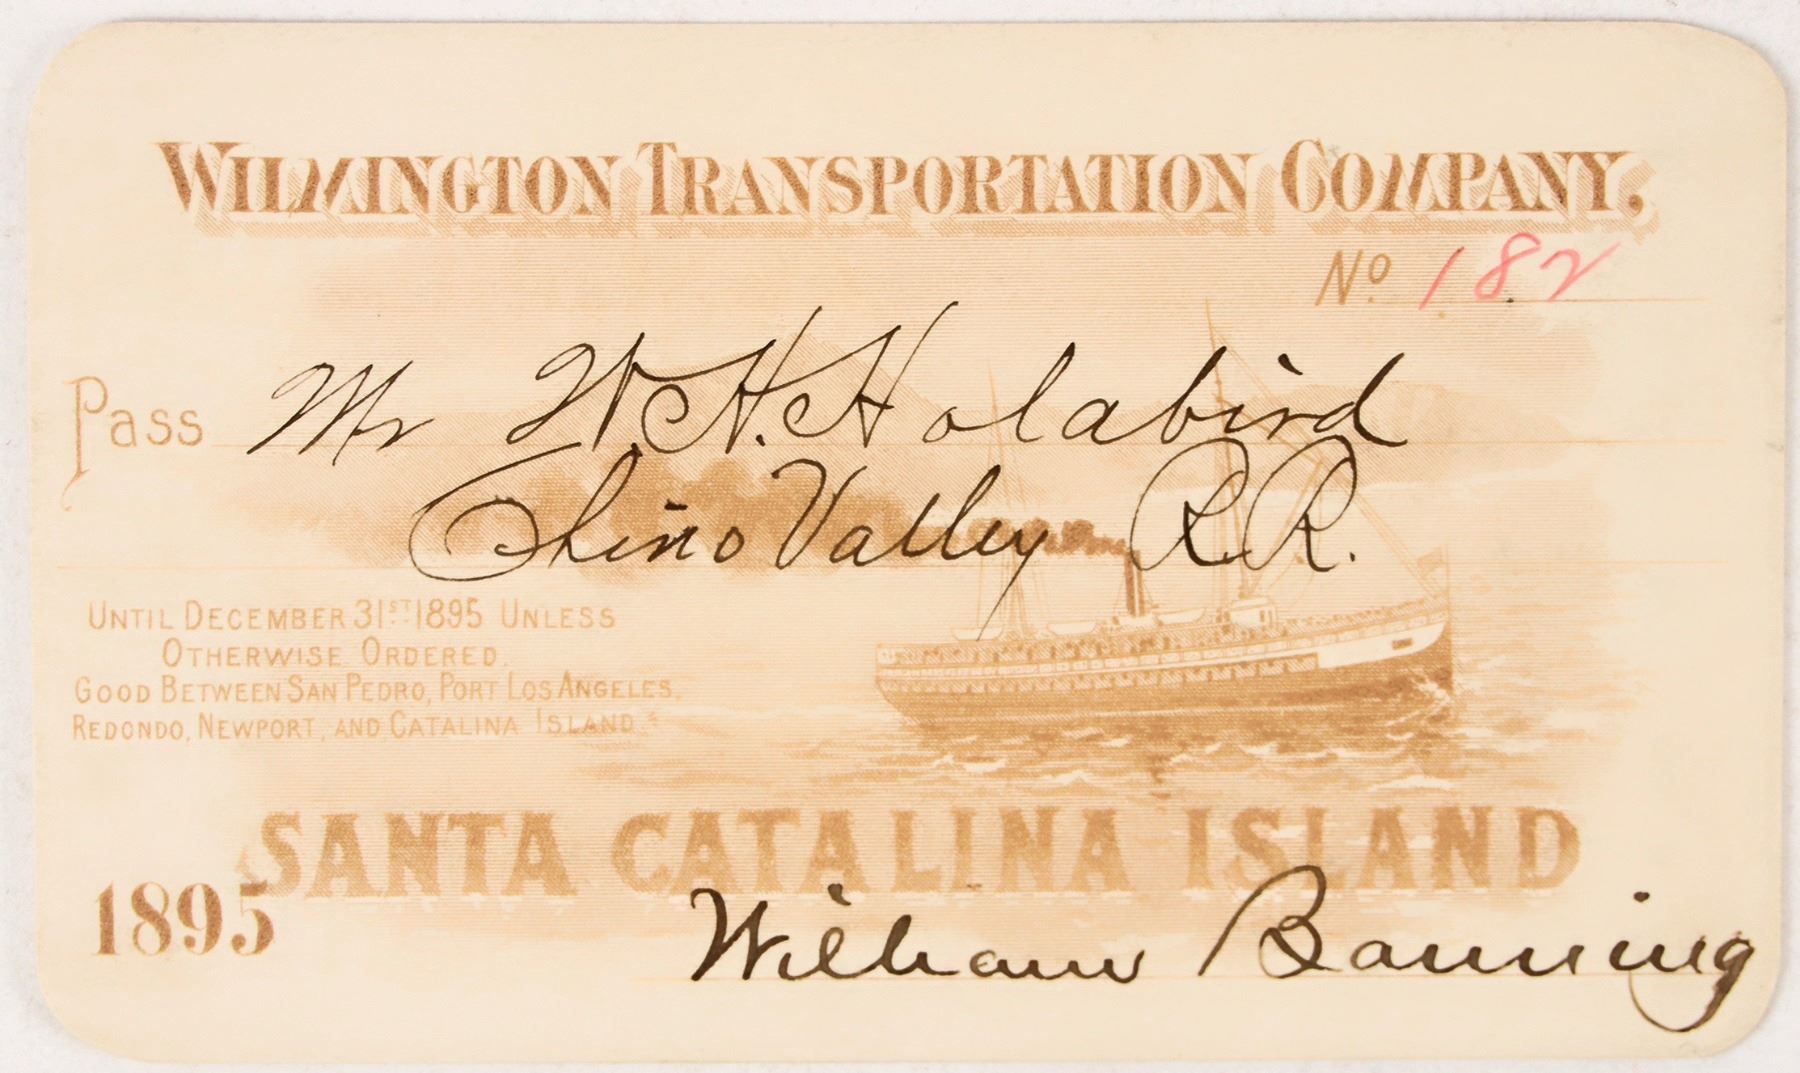 WILMINGTON TRANSPORTATION COMPANY,
No. 182
Pass Mr W. H. Holabird
Chino Valley R.R.
UNTIL DECEMBER 31ST 1895 UNLESS
OTHERWISE ORDERED.
GOOD BETWEEN SAN PEDRO, PORT LOS ANGELES,
REDONDO, NEWPORT, AND CATALINA ISLAND.
SANTA CATALINA ISLAND
1895
William Banning